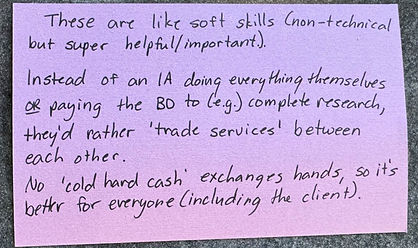 These are like soft skills (non-technical
but super helpful/important).
Instead of an IA doing everything themselves
OR paying the BD to (e.g.) complete research,
they'd rather 'trade services' between
each other.
No 'cold hard cash' exchanges hands, so it's
better for everyone (including the client).